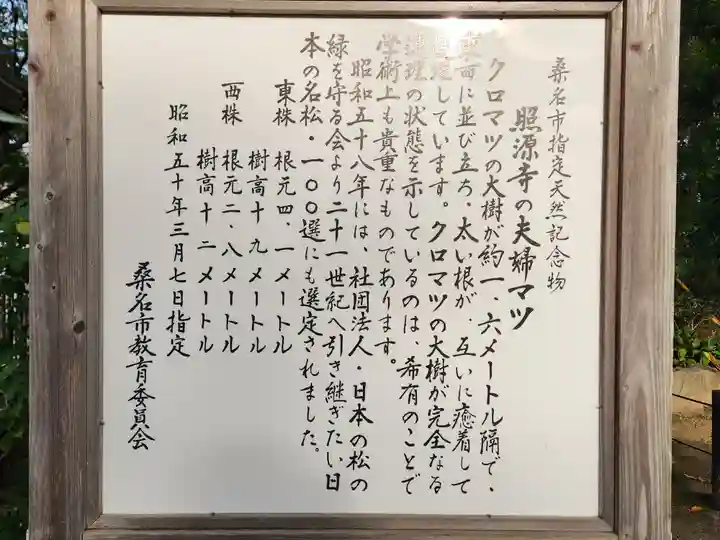 桑名市指定天然記念物
照源寺の夫婦マツ
クロマツの大樹が約一、六メートル隔で、
東西に並び立ろ、太い根が、互いに癒着して
しています。クロマツの大樹が完全なる
連理の状態を示しているのは、希有のことで
学術上も貴重なものであります。
昭和五十八年には、社団法人・日本の松の
緑を守る会より二十一世紀へ引き継ぎたい日
本の名松・一〇〇選にも選定されました。
東株 根元四、一メートル
樹高十九メートル
西株 根元二、八メートル
樹高十二メートル
昭和五十年三月七日指定
桑名市教育委員会